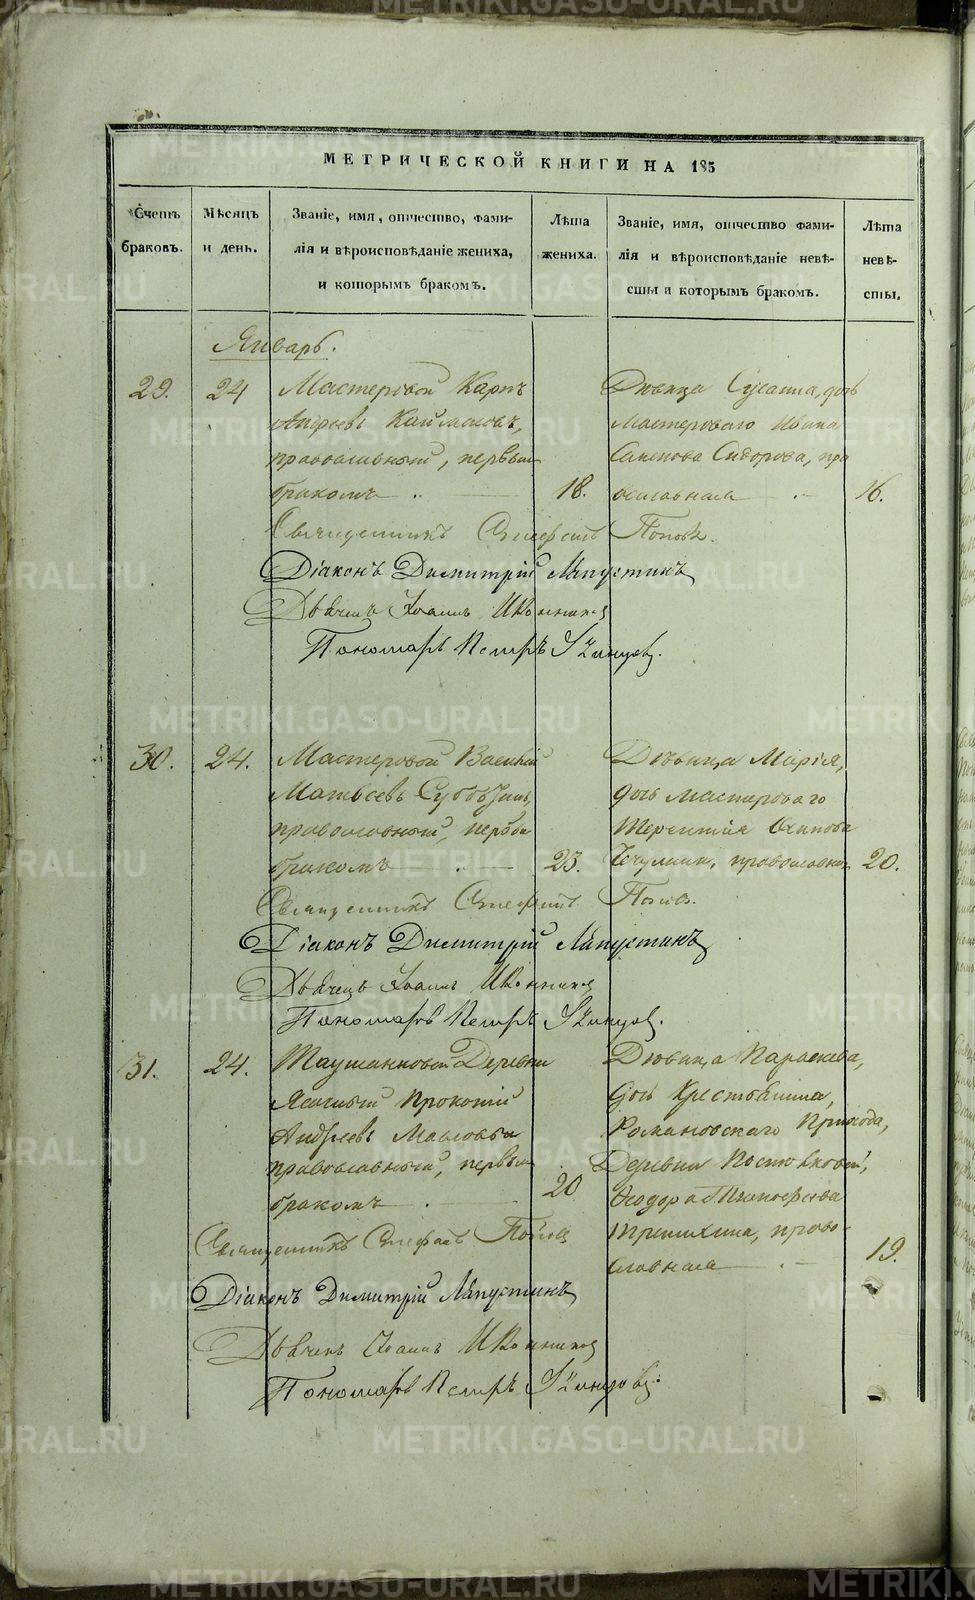 МЕТРИЧЕСКОЙ КНИГИ НА 185
Счетъ браковъ.
Мѣсяцъ и день.
Званіе, имя, отчество, фами-
лія и вѣроисповѣданіе жениха,
и которымъ бракомъ.
Лѣта жениха.
Званіе, имя, отчество фами-
лія и вѣроисповѣданіе невѣ-
сты и которымъ бракомъ.
Лѣта невѣ-
сты.
Январь.
29. 24
Мастеровой Карпъ
Андреевъ
православный, первым
бракомъ 18.
Девица Сусанна, дочь
Мастероваго Ивана
Сидорова, пра
вославная 16.
Священникъ Стефанъ Поповъ.
Діаконъ Димитрій Ляпустинъ
Дьячекъ Іоаннъ Иконников
Пономарь Петръ
30. 24.
Мастеровой Василій
Матвеевъ
православный, первым
бракомъ 23.
Девица Марія,
дочь Мастероваго
Терентія Осипова
православная 20.
Священникъ Стефанъ Поповъ.
Діаконъ Димитрій Ляпустинъ
Дьячекъ Іоаннъ Иконников
Пономарь Петръ
31. 24.
Деревни
Ясачный Прокопій
Андреевъ
православный, первым
бракомъ 20
Девица Параскева,
дочь Крестьянина,
Романовскаго Прихода,
Деревни
Феодора
право-
славная 19.
Священникъ Стефанъ Поповъ
Діаконъ Димитрій Ляпустинъ
Дьячекъ Іоаннъ Иконников
Пономарь Петръ
METRIKI.GASO-URAL.RU